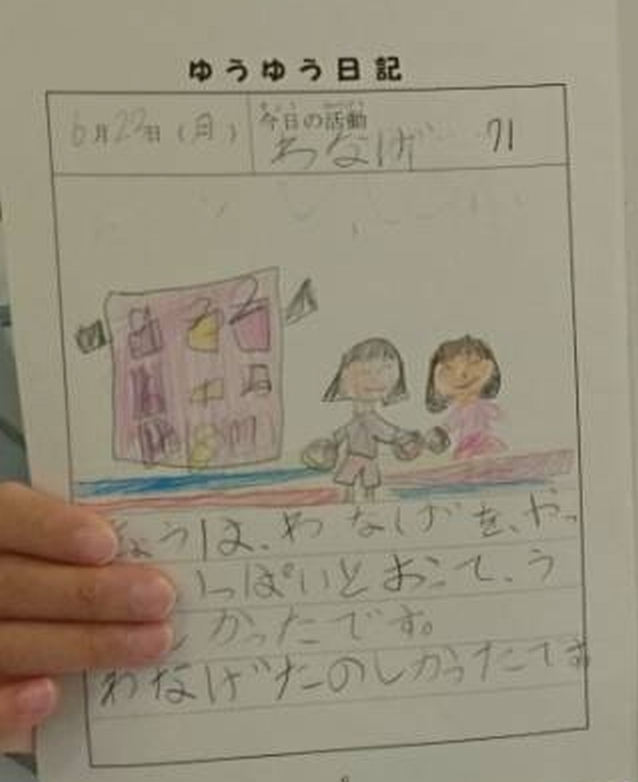 ゆうゆう日記
6月22日(月) 今日の活動
わなげ 71
ょうは、わなげを、やっ
いっぱいとおって、う
しかったです。
わなげたのしかったてす